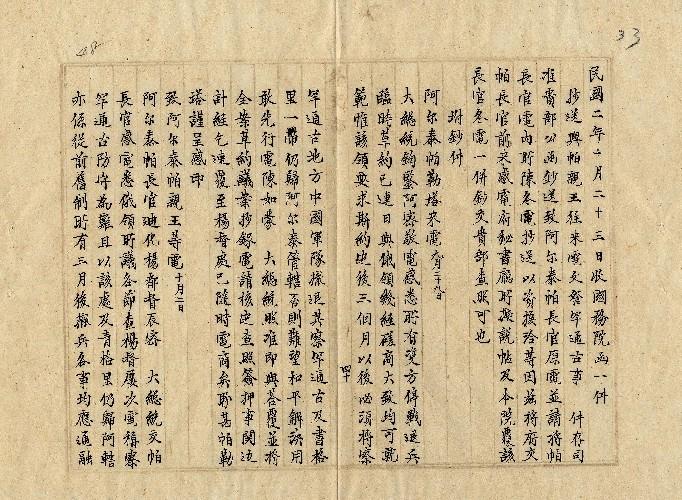 33
48
民國二年十月二十三日收國務院函一件
抄送與帕親王往來電文發察罕通古事 件存司
准貴部公函鈔送致阿爾泰帕長官原電並請將帕
長官電內所陳各電抄送以資接洽等因茲將府交
帕長官前來感電府秘書廳所擬說帖及本院覆該
長官冬電一併鈔交貴部查照可也
附鈔件
阿爾泰帕勒塔來電
大總統鈞鑒阿密敬電感悉所有雙方停戰退兵
臨時草約已連日與俄領總經磋商大致均可就
範惟該領要求斯約定後三個月以後必須將察
罕通古地方中國軍隊撤退其察罕通古及青格
里一帶仍歸阿尔泰管轄否則難望和平解決用
敢先行電陳如蒙 大總統照准即與簽覆並將
全案草約議案抄錄電請核定查照簽押事關邊
計經乞速覆至楊督處已隨時電商矣耶甚帕勒
塔謹呈感印
致阿尔泰帕親王等電十月二日
阿尔泰帕長官迪化楊都督辰密 大總統交帕
長官感電悉俄領所議各節查楊督屢次電稱察
罕通古防守為難且以該處及青格里仍歸阿轄
亦係從前舊制所有三月後撤兵各事均應通融
四十